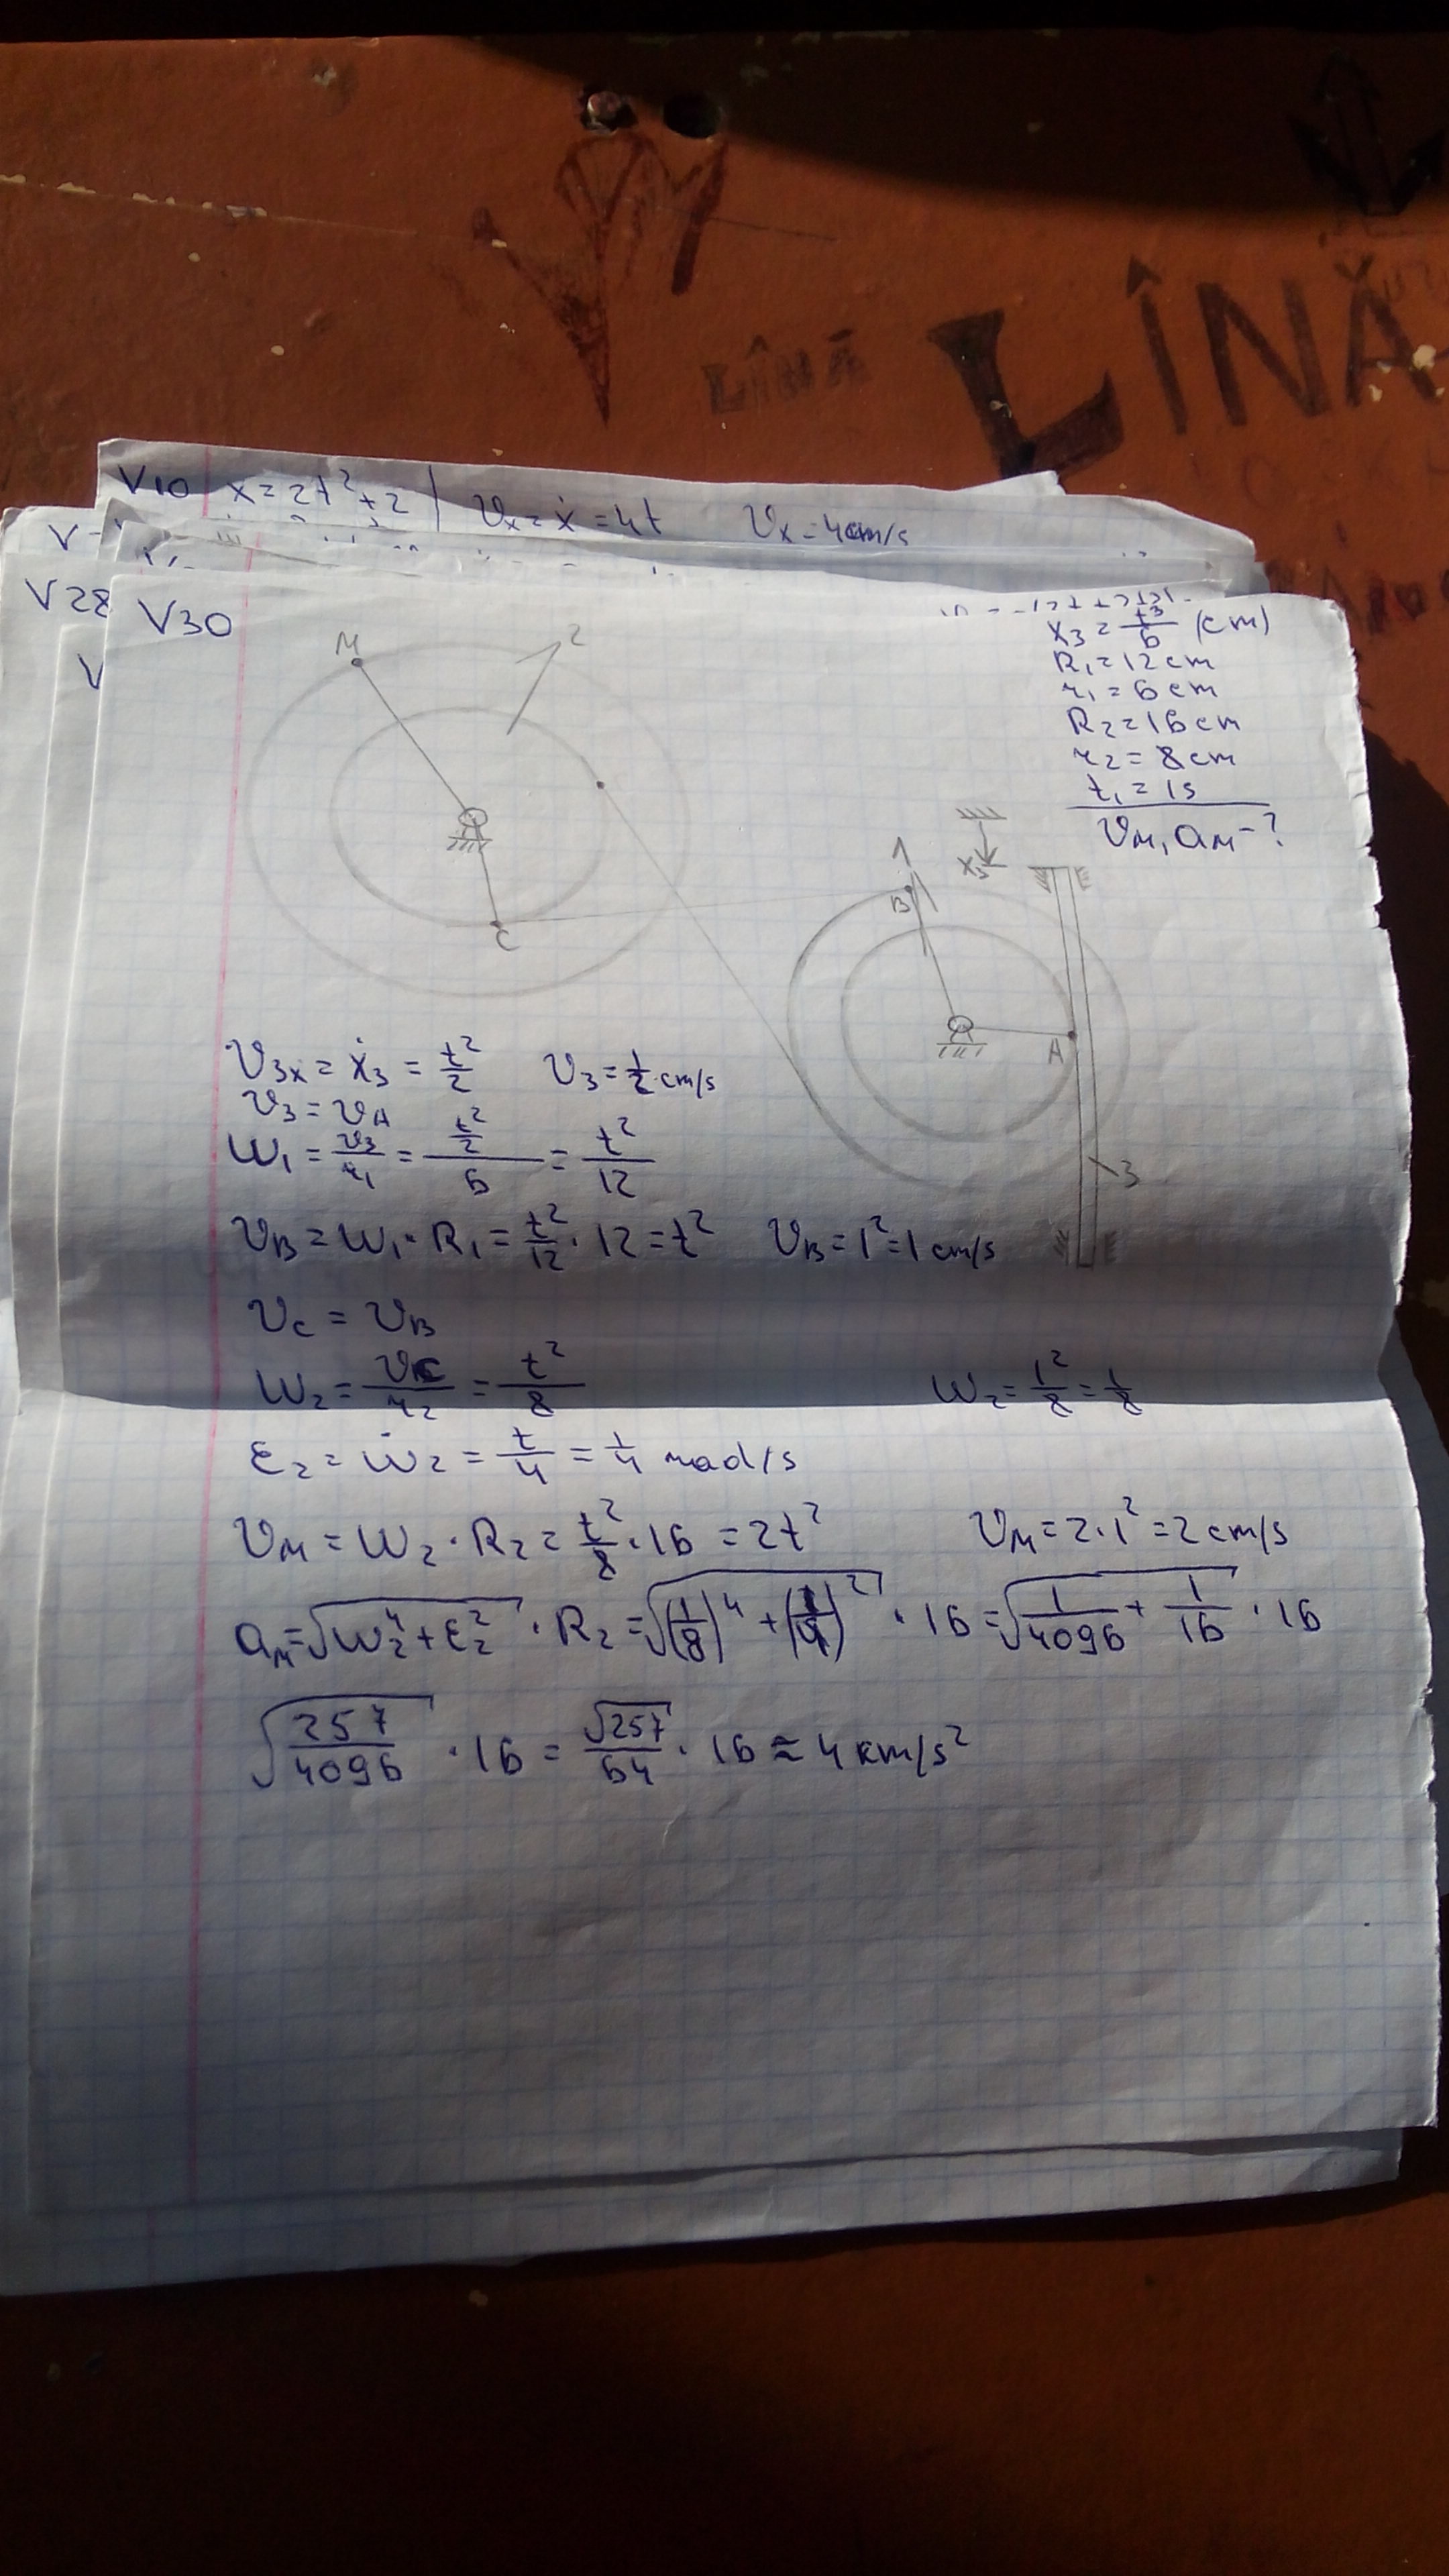 LÎNĂ
LÎNĂ
V10 x = 2t² + 2 | Vx = ẋ = 4t Vx = 4cm/s
V28
V30
x₃ = t³/6 (cm)
R₁ = 12 cm
r₁ = 6 cm
R₂ = 16 cm
r₂ = 8 cm
t₁ = 1s
VM, aM - ?
M
2
C
1
B
x₃
A
3
V₃x = ẋ₃ = t²/2 V₃ = 1/2 cm/s
V₃ = VA
W₁ = V₃/r₁ = (t²/2)/6 = t²/12
VB = W₁ · R₁ = t²/12 · 12 = t² VB = 1² = 1 cm/s
VC = VB
W₂ = VC/r₂ = t²/8 W₂ = 1²/8 = 1/8
ε₂ = ẇ₂ = t/4 = 1/4 rad/s
VM = W₂ · R₂ = t²/8 · 16 = 2t² VM = 2·1² = 2 cm/s
aM = √(W₂⁴ + ε₂²) · R₂ = √((1/8)⁴ + (1/4)²) · 16 = √(1/4096 + 1/16) · 16
√(257/4096) · 16 = √257/64 · 16 ≈ 4 cm/s²